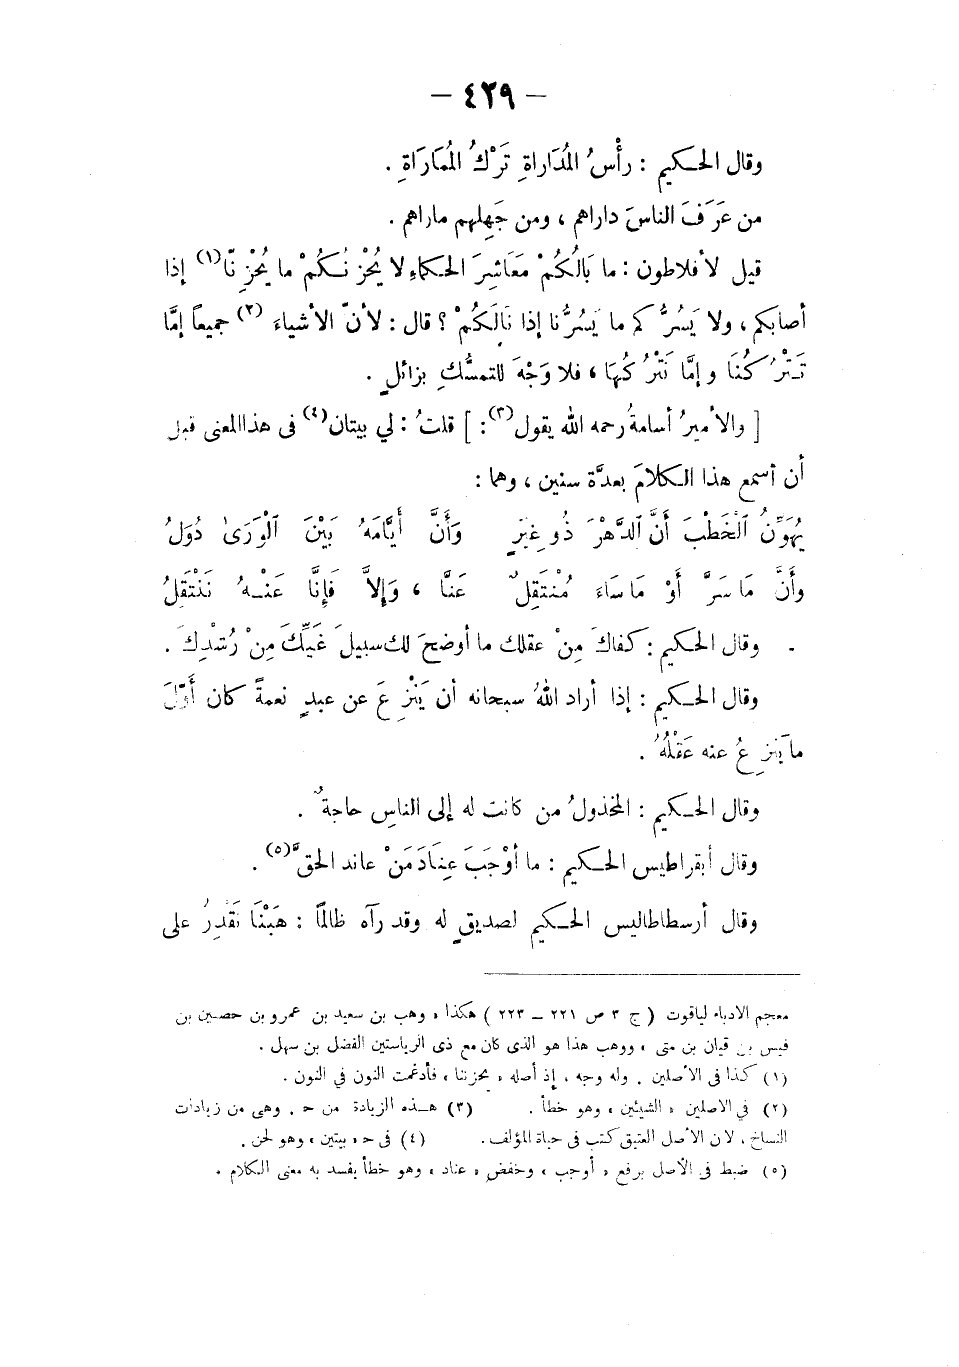 — ٤٢٩ —
وقال الحكيم : رأْسُ المُدَاراةِ تَرْكُ المُمَارَاةِ .
من عَرَفَ الناسَ داراهم ، ومن جَهِلهم ماراهم .
قيل لأفلاطون : ما بَالُكُمْ مَعَاشِرَ الحكماءِ لا يُحْزِنُكُمْ ما يُحْزِنّا(١) إذا
أصابكم ، ولا يَسُرُّكم ما يَسُرُّنا إذا نَالَكُمْ ؟ قال : لأنّ الأشياءَ (٢) جميعاً إمَّا
تَتْرُكُنَا وإمَّا نَتْرُكُهَا ، فلا وَجْهَ للتمسُّكِ بزائلٍ .
[ والأميرُ أسامةُ رحمه الله يقول(٣) : ] قلتُ : لي بيتان(٤) في هذا المعنى قبل
أن أسمع هذا الكلامَ بعدَّة سنين ، وهما :
يُهَوِّنُ الْخَطْبَ أَنَّ الدَّهْرَ ذُو غِيَرٍ وَأَنَّ أَيَّامَهُ بَيْنَ الْوَرَىٰ دُوَلُ
وأَنَّ مَا سَرَّ أَوْ مَا سَاءَ مُنْتَقِلٌ عَنَّا ، وَإلاَّ فَإِنَّا عَنْهُ نَنْتَقِلُ
. وقال الحكيم : كفاكَ مِنْ عقلك ما أوضحَ لك سبيلَ غَيِّكَ مِنْ رُشْدِكَ .
وقال الحكيم : إذا أراد اللهُ سبحانه أن يَنْزِعَ عن عبدٍ نعمةً كان أَوَّلَ
ما يَنْزِعُ عنه عَقْلُهُ .
وقال الحكيم : المخذولُ من كانت له إلى الناسِ حاجةٌ .
وقال أبقراطيس الحكيم : ما أوْجَبَ عِنَادَ مَنْ عاند الحقَّ(٥) .
وقال أرسطاطاليس الحكيم لصديقٍ له وقد رآه ظالمًا : هَبْنَا نَقْدِرُ على
معجم الأدباء لياقوت ( ج ٣ ص ٢٢١ – ٢٢٣ ) هكذا « وهب بن سعيد بن عمرو بن حصين بن
قيس بن قيان بن متى » ووهب هذا هو الذى كان مع ذى الرياستين الفضل بن سهل .
(١) كذا فى الأصلين . وله وجه ، إذ أصله « يحزننا » فأدغمت النون في النون .
(٢) في الاصلين « الشيئين » وهو خطأ . (٣) هذه الزيادة من حـ . وهى من زيادات
النساخ ، لان الأصل العتيق كتب فى حياة المؤلف . (٤) فى حـ « بيتين » وهو لحن .
(٥) ضبط فى الأصل برفع « أوجب » وخفض « عناد » وهو خطأ يفسد به معنى الكلام .